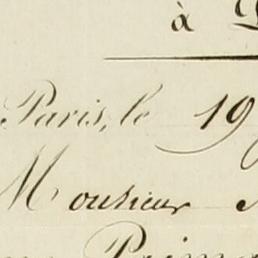 à
Paris, le 19
Monsieur